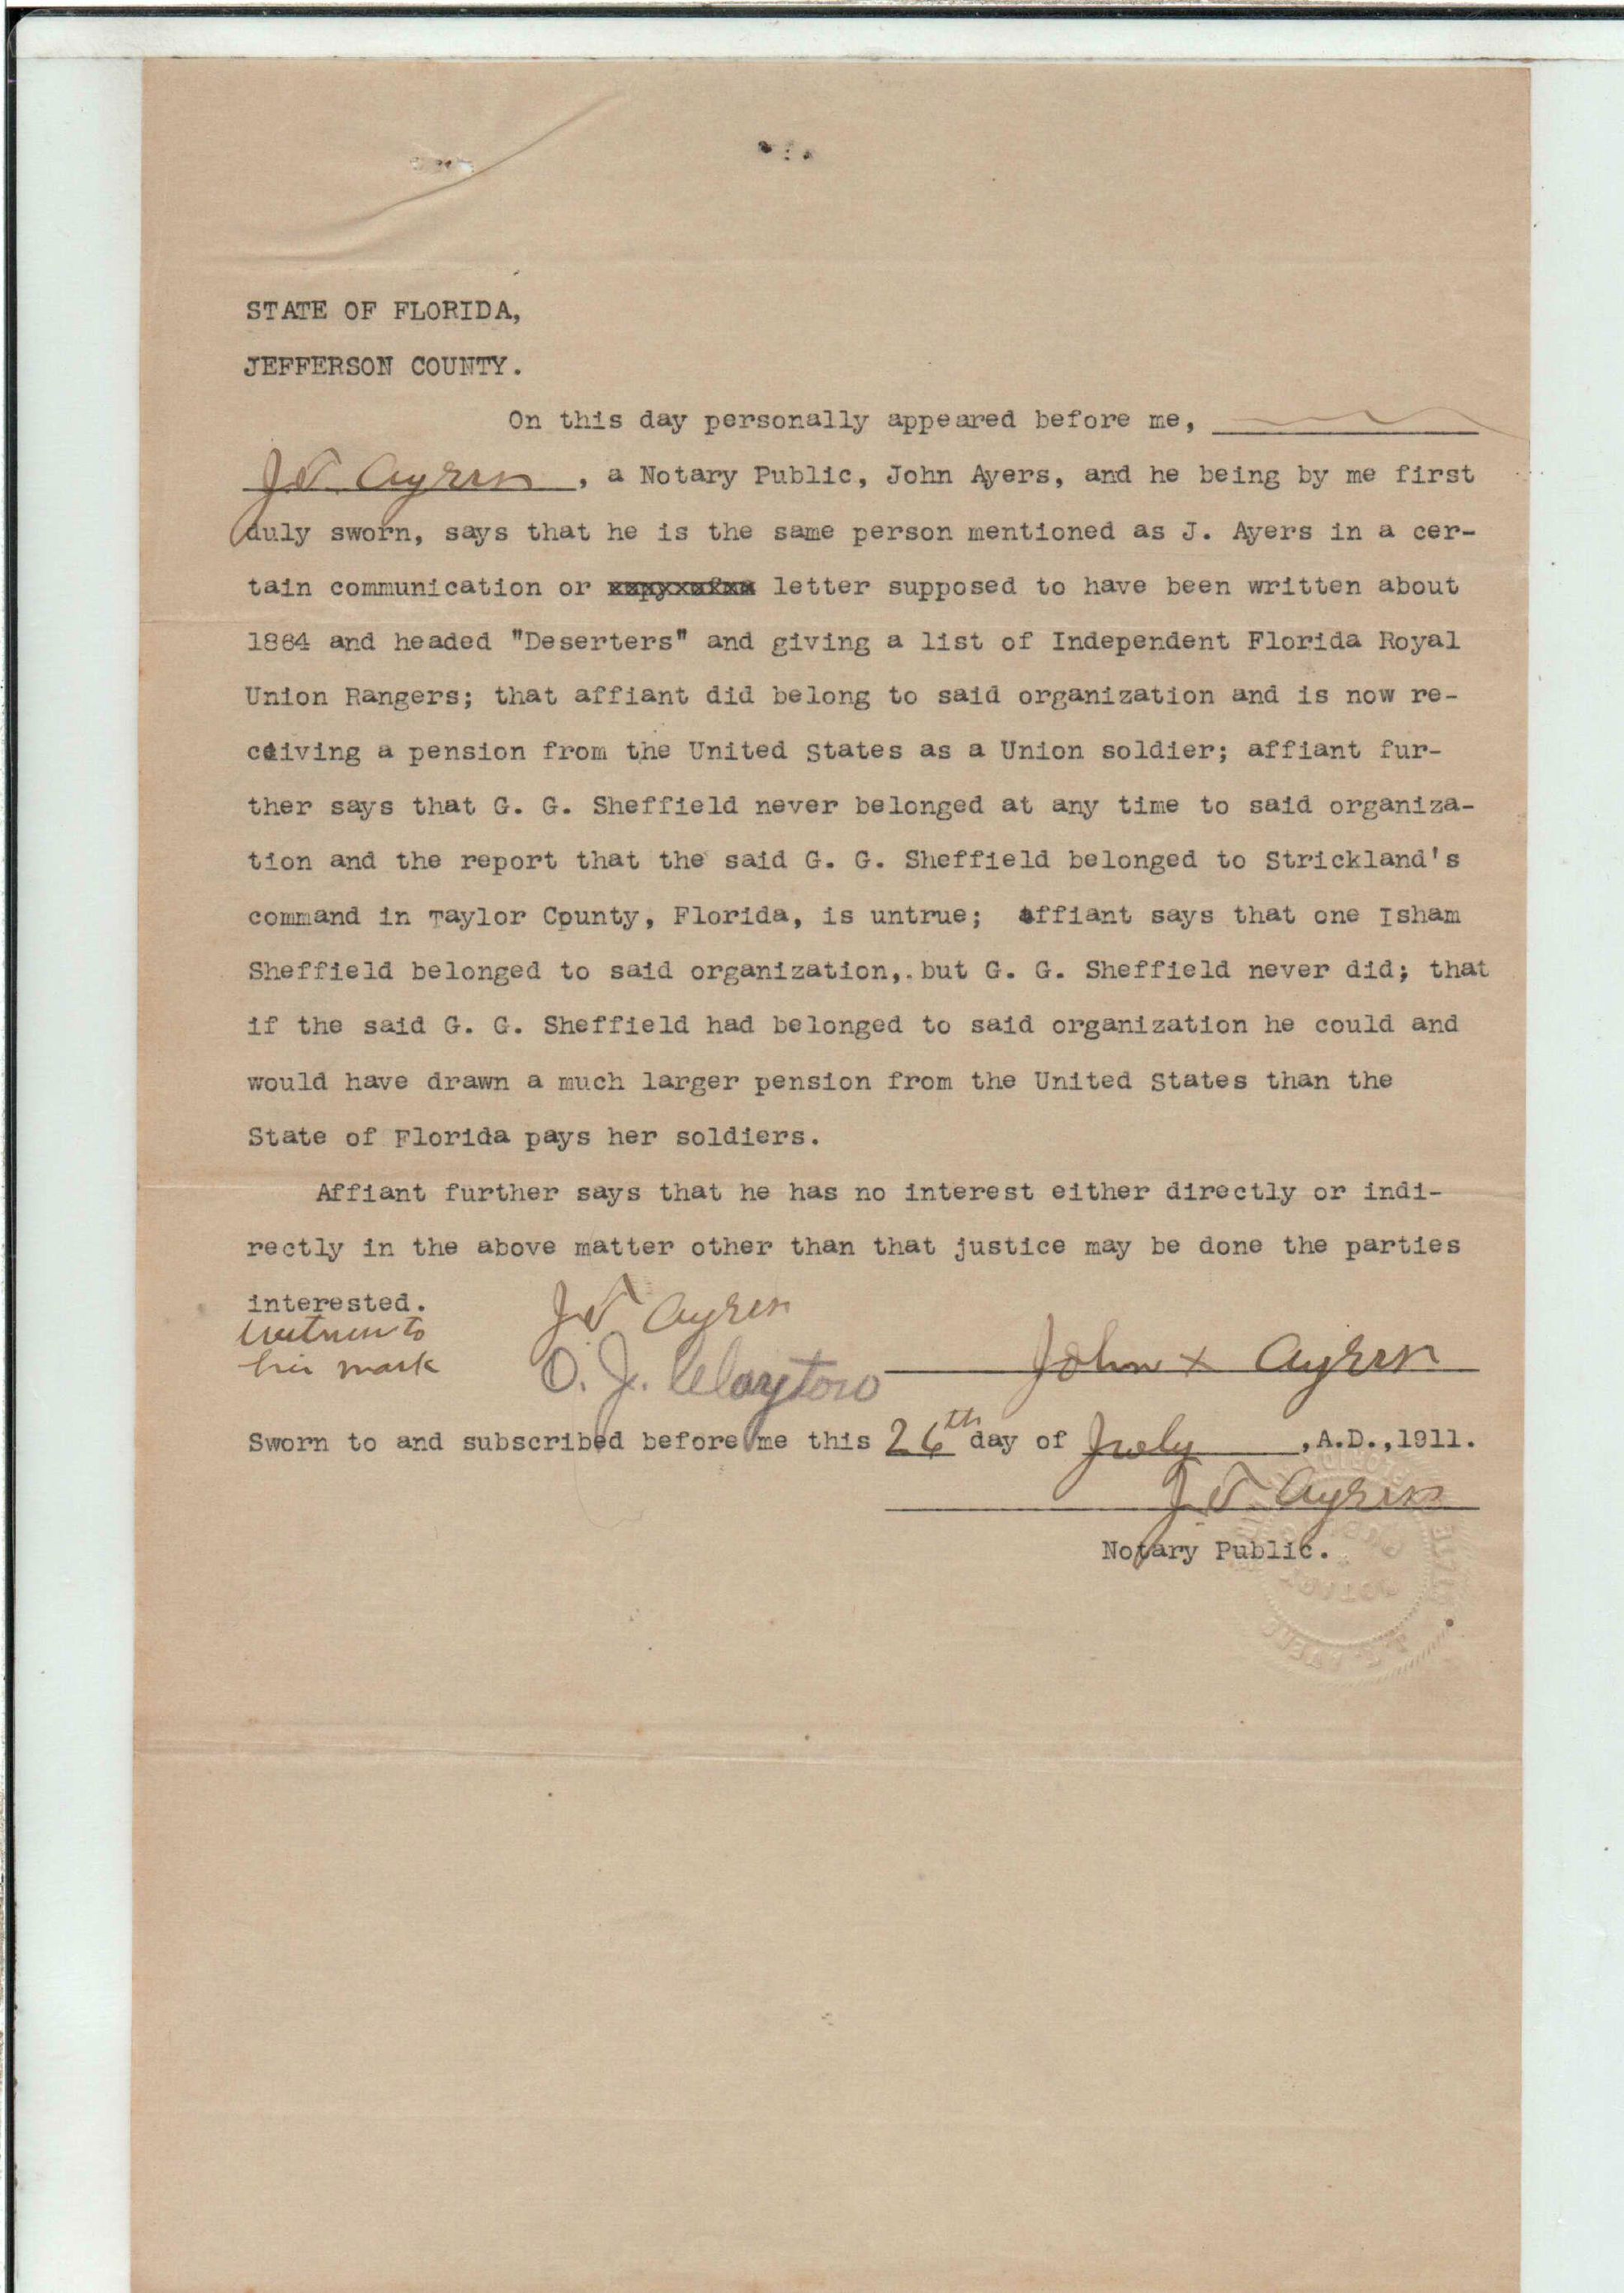 STATE OF FLORIDA,
JEFFERSON COUNTY.
On this day personally appeared before me,
J T Ayers, a Notary Public, John Ayers, and he being by me first
duly sworn, says that he is the same person mentioned as J. Ayers in a cer-
tain communication or letter supposed to have been written about
1864 and headed "Deserters" and giving a list of Independent Florida Royal
Union Rangers; that affiant did belong to said organization and is now re-
ceiving a pension from the United States as a Union soldier; affiant fur-
ther says that G. G. Sheffield never belonged at any time to said organiza-
tion and the report that the said G. G. Sheffield belonged to Strickland's
command in Taylor County, Florida, is untrue; affiant says that one Isham
Sheffield belonged to said organization, but G. G. Sheffield never did; that
if the said G. G. Sheffield had belonged to said organization he could and
would have drawn a much larger pension from the United States than the
State of Florida pays her soldiers.
Affiant further says that he has no interest either directly or indi-
rectly in the above matter other than that justice may be done the parties
interested.
Witness to J T Ayers
his mark O. J. Clayton John x Ayers
Sworn to and subscribed before me this 26th day of July, A.D.,1911.
J T Ayers
Notary Public.